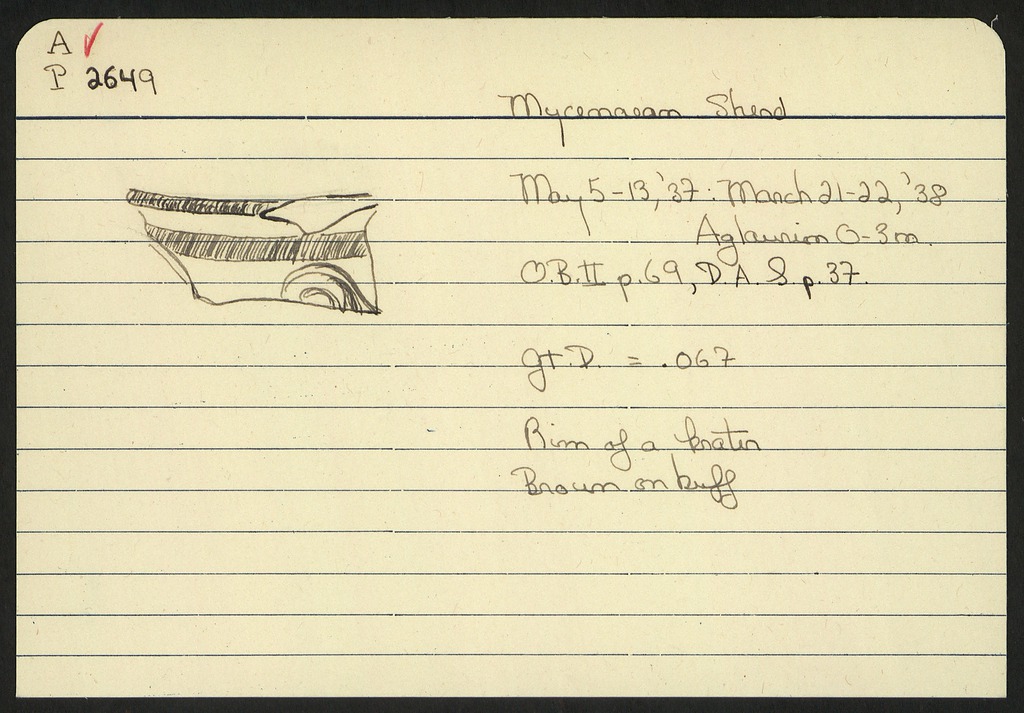 A ✓
P 2649
Mycenaean Sherd
May 5-13,'37: March 21-22,'38
Aglaurion 0-3m.
O.B. II p.69, D.A.S. p.37.
gt.D. = .067
Rim of a krater
Brown on buff